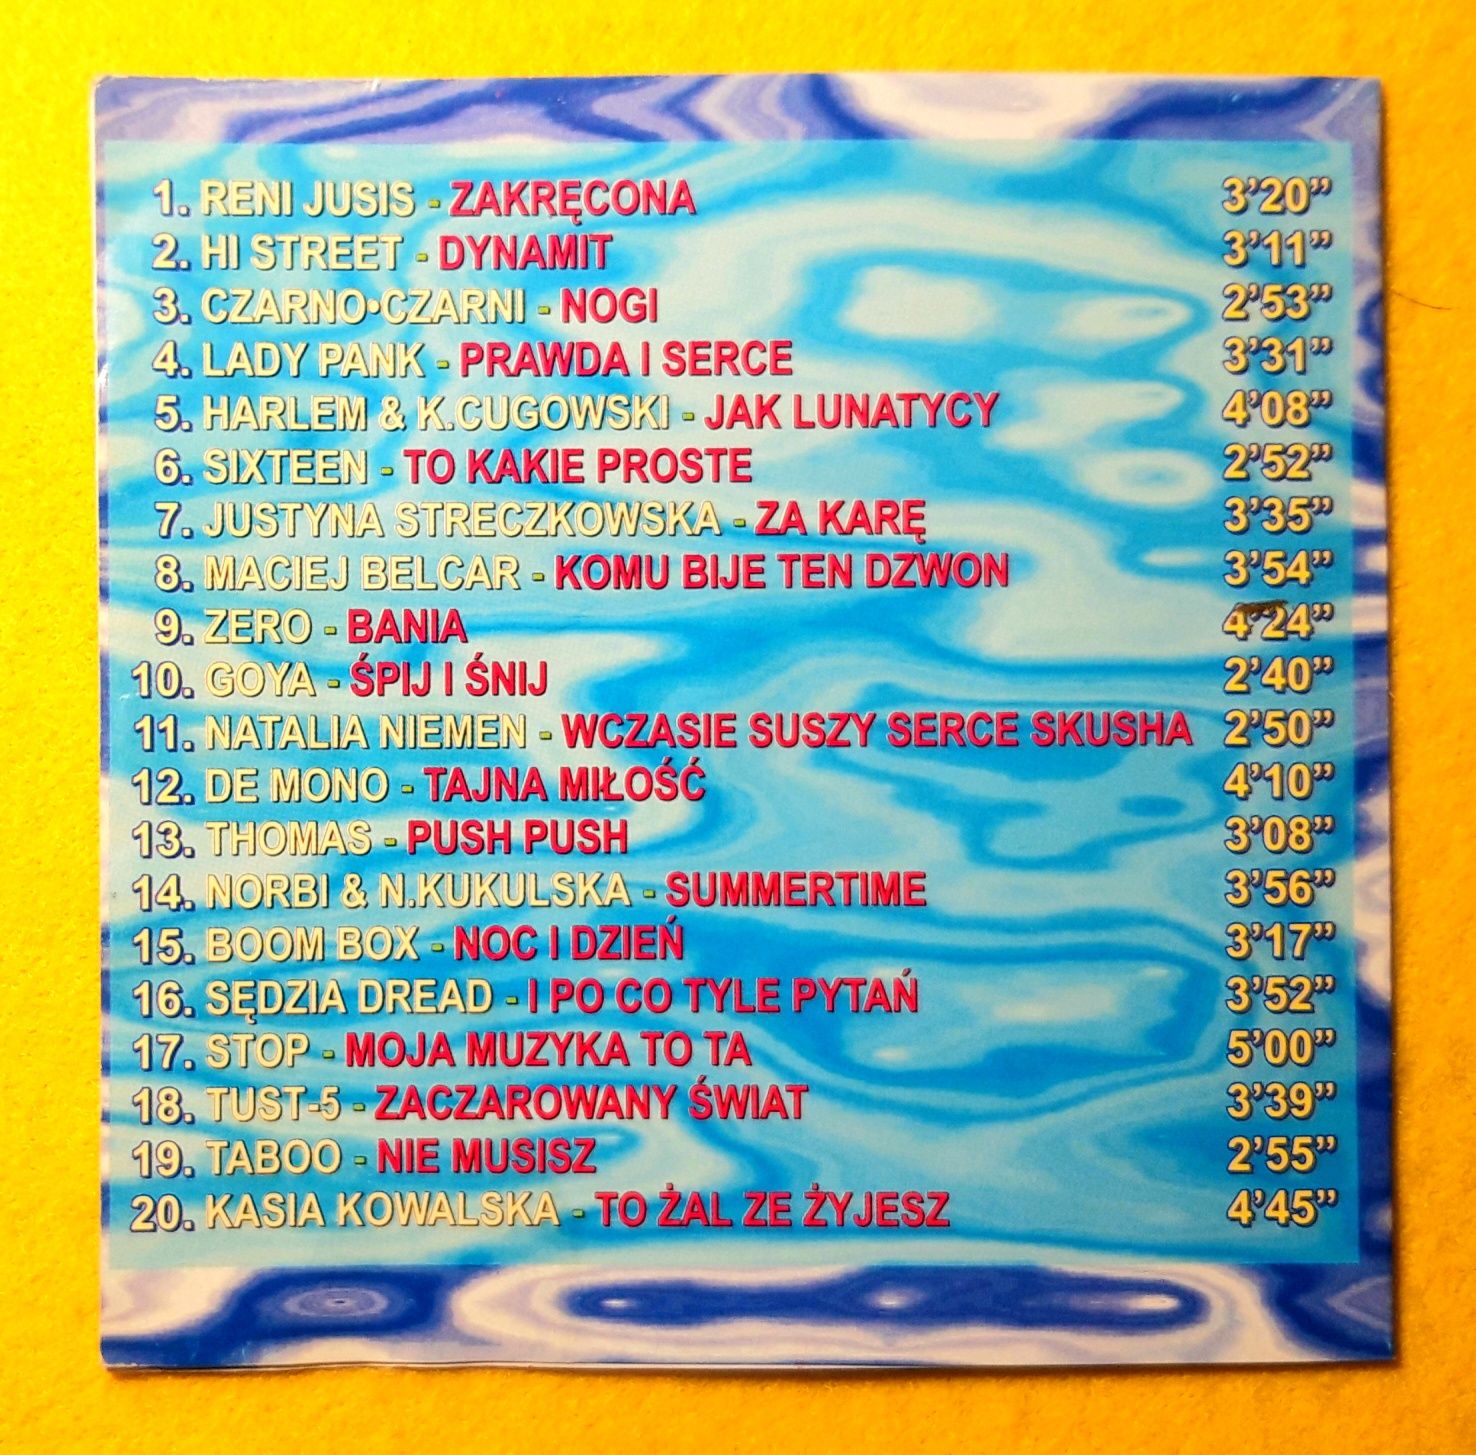 1. RENI JUSIS - ZAKRĘCONA 3’20”
2. HI STREET - DYNAMIT 3’11”
3. CZARNO•CZARNI - NOGI 2’53”
4. LADY PANK - PRAWDA I SERCE 3’31”
5. HARLEM & K.CUGOWSKI - JAK LUNATYCY 4’08”
6. SIXTEEN - TO KAKIE PROSTE 2’52”
7. JUSTYNA STRECZKOWSKA - ZA KARĘ 3’35”
8. MACIEJ BELCAR - KOMU BIJE TEN DZWON 3’54”
9. ZERO - BANIA 4’24”
10. GOYA - ŚPIJ I ŚNIJ 2’40”
11. NATALIA NIEMEN - WCZASIE SUSZY SERCE SKUSHA 2’50”
12. DE MONO - TAJNA MIŁOŚĆ 4’10”
13. THOMAS - PUSH PUSH 3’08”
14. NORBI & N.KUKULSKA - SUMMERTIME 3’56”
15. BOOM BOX - NOC I DZIEŃ 3’17”
16. SĘDZIA DREAD - I PO CO TYLE PYTAŃ 3’52”
17. STOP - MOJA MUZYKA TO TA 5’00”
18. TUST-5 - ZACZAROWANY ŚWIAT 3’39”
19. TABOO - NIE MUSISZ 2’55”
20. KASIA KOWALSKA - TO ŻAL ZE ŻYJESZ 4’45”